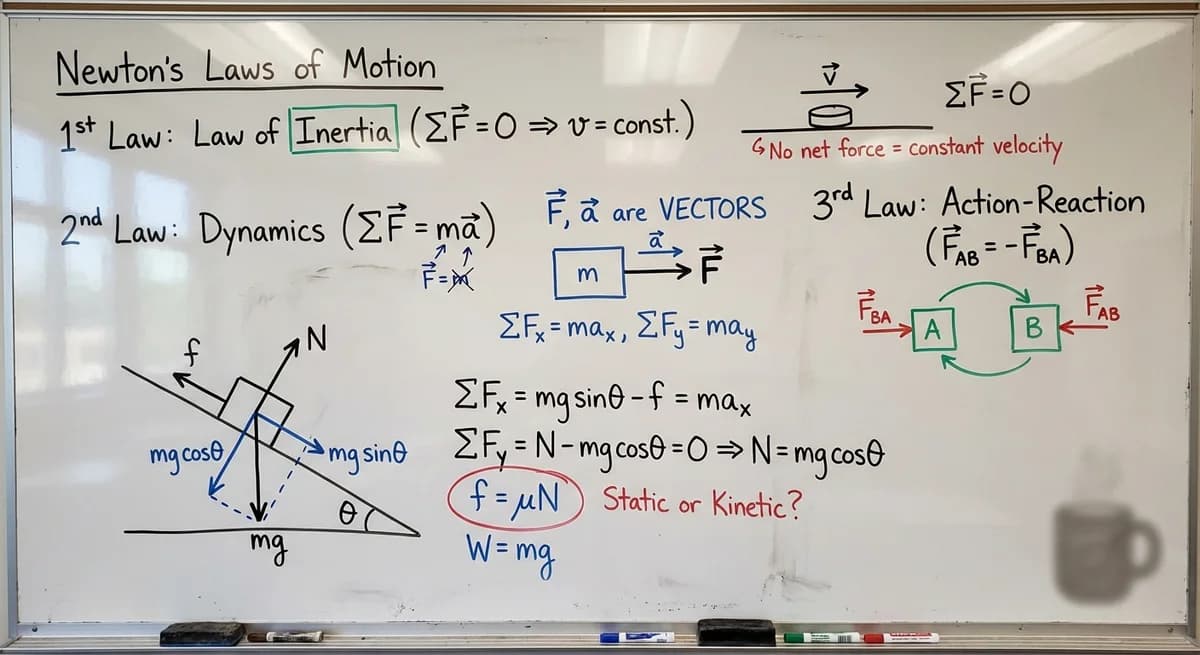 Newton's Laws of Motion
1st Law: Law of Inertia (ΣF⃗ = 0 ⇒ v = const.)
v⃗
ΣF⃗ = 0
↳ No net force = constant velocity
2nd Law: Dynamics (ΣF⃗ = ma⃗)
F⃗ = m
F⃗, a⃗ are VECTORS
a⃗
m
F⃗
ΣFx = max, ΣFy = may
3rd Law: Action-Reaction
(F⃗AB = -F⃗BA)
F⃗BA
A
B
F⃗AB
f
N
mg cosθ
mg sinθ
θ
mg
ΣFx = mg sinθ - f = max
ΣFy = N - mg cosθ = 0 ⇒ N = mg cosθ
f = μN Static or Kinetic?
W = mg